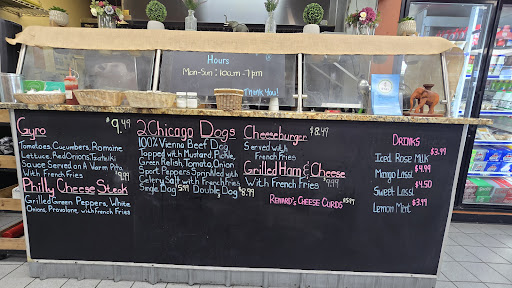 Hours
Mon-Sun: 10am-7pm
Thank you!
Gyro $9.49
Tomatoes, Cucumbers, Romaine
Lettuce, Red Onions, Tzatziki
Sauce Served on A Warm Pita
With French Fries $9.99
Philly Cheese Steak
Grilled Green Peppers, White
Onions, Provolone, with French Fries
2 Chicago Dogs
100% Vienna Beef Dog
Topped with Mustard, Pickle,
Green Relish, Tomato, Onion
Sport Peppers Sprinkled with
Celery Salt with French Fries
Single Dog 5.99 Double Dog $8.99
Cheeseburger $8.49
Served with
French Fries
Grilled Ham & Cheese
With French Fries $7.99
Renard's Cheese Curds $5.99
Drinks
Iced Rose Milk $3.99
Mango Lassi $4.99
Sweet Lassi $4.50
Lemon Mint $3.99